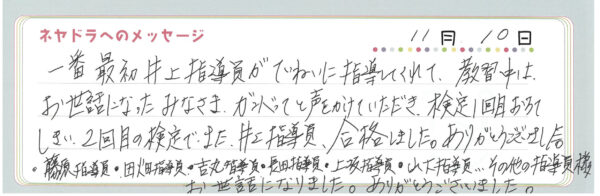 ネヤドラへのメッセージ 11月 10日
一番最初井上指導員がていねいに指導してくれて、教習中は、
お世話になったみなさま、ガンバってと声をかけていただき、検定1回目おちて
しまい、2回目の検定でまた、井上指導員、合格しました。ありがとうございました。
・藤原指導員・田畑指導員・吉丸指導員・長田指導員・上坂指導員・山大指導員…その他の指導員様
お世話になりました。ありがとうございました。